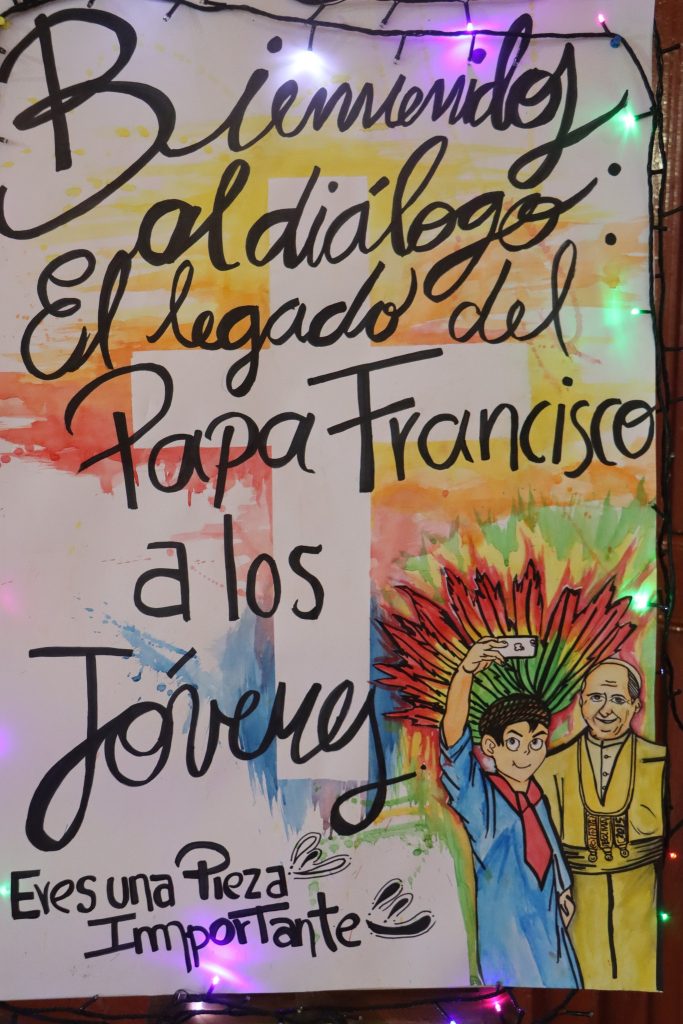 Bienvenidos
al diálogo:
El legado del
Papa Francisco
a los
Jóvenes
Eres una Pieza
Importante
2015